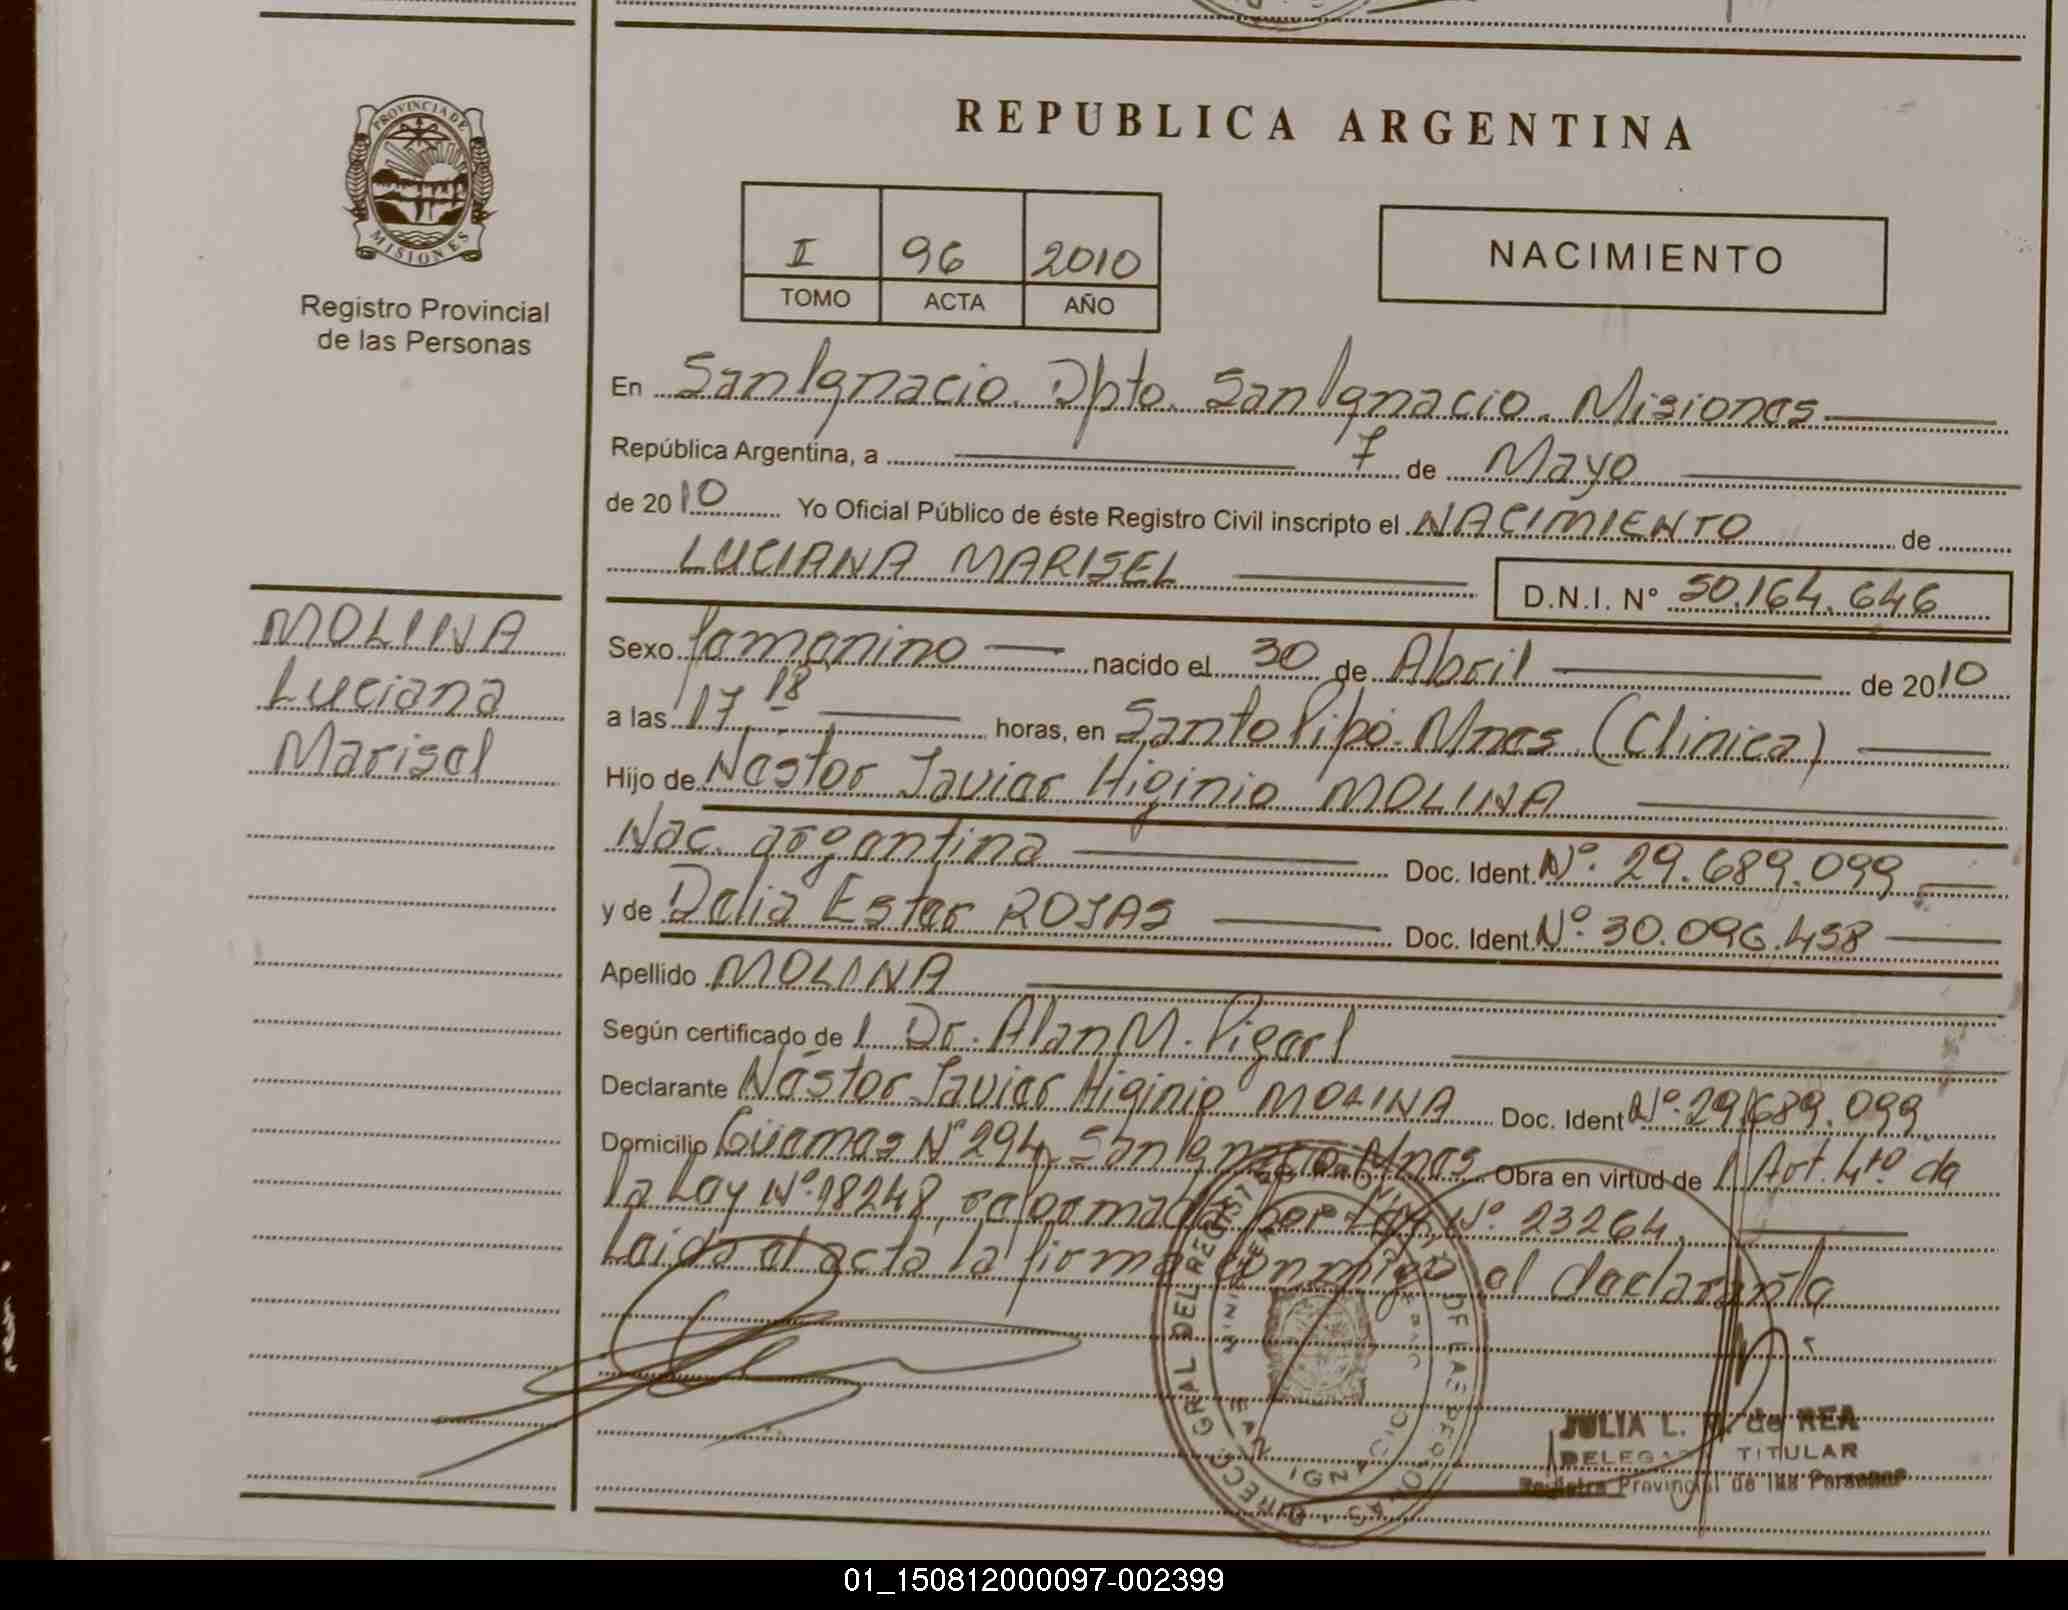 REPUBLICA ARGENTINA
PROVINCIA DE
MISIONES
Registro Provincial
de las Personas
I 96 2010
TOMO ACTA AÑO
NACIMIENTO
En San Ignacio. Dpto. San Ignacio. Misiones
República Argentina, a 7 de Mayo
de 2010 Yo Oficial Público de éste Registro Civil inscripto el NACIMIENTO de
LUCIANA MARISEL D.N.I. Nº 50.164.646
MOLINA
Luciana
Marisel
Sexo femenino nacido el 30 de Abril de 2010
a las 17,18 horas, en Santo Pipó. Mnes. (Clínica)
Hijo de Nestor Javier Higinio MOLINA
Nac. argentina Doc. Ident. Nº. 29.689.099
y de Delia Ester ROJAS Doc. Ident. Nº. 30.096.458
Apellido MOLINA
Según certificado de l Dr. Alan M.
Declarante Néstor Javier Higinio MOLINA Doc. Ident Nº. 29.689.099
Domicilio Güemes Nº 294 San Ignacio Mnes. Obra en virtud de l Art. 4to. de
la Ley Nº. 18248, reformada por Ley Nº. 23264.
Leída el acta la firma conmigo el declarante
DIRECC. GRAL DEL REGISTRO DE LAS PERSONAS
JULIA L. de REA
TITULAR
Registro Provincial de las Personas
01_150812000097-002399